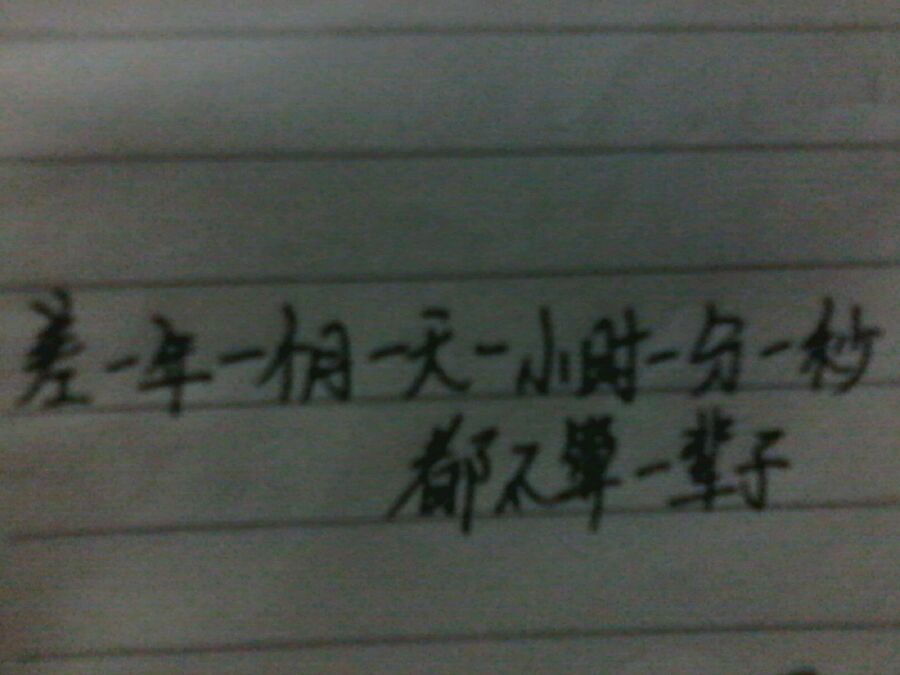 差一年一个月一天一小时一分一秒
都不算一辈子